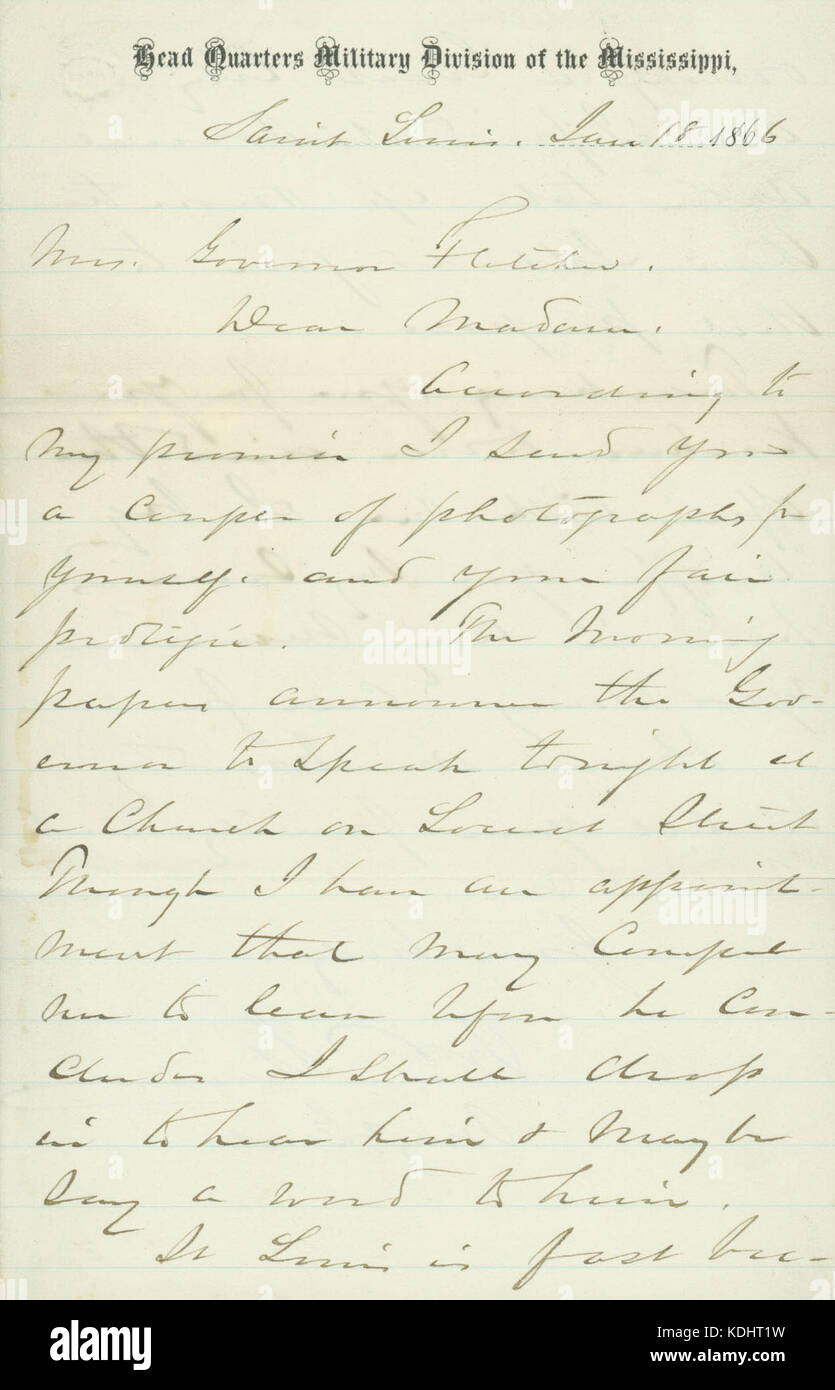 Head Quarters Military Division of the Mississippi,
Saint Louis. Jan 18 1866
Mrs. Governor Fletcher.
Dear Madam.
According to
my promise I send you
a couple of photographs for
yourself. and your fair
protégée. The Morning
papers announce the Gov-
ernor to speak tonight at
a Church on Locust Street
Though I have an appoint-
ment that may compel
me to leave before he con-
cludes I shall drop
in to hear him & maybe
say a word to him.
St Louis is fast bec-
alamy
alamy stock photo
KDHT1W
www.alamy.com